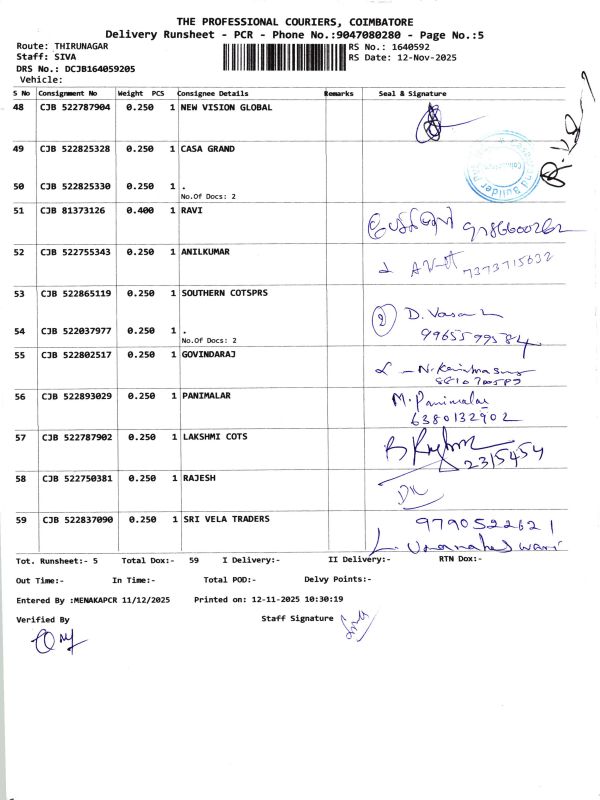 THE PROFESSIONAL COURIERS, COIMBATORE
Delivery Runsheet - PCR - Phone No.:9047080280 - Page No.:5
Route: THIRUNAGAR RS No.: 1640592
Staff: SIVA RS Date: 12-Nov-2025
DRS No.: DCJB164059205
Vehicle:
S No Consignment No Weight PCS Consignee Details Remarks Seal & Signature
48 CJB 522787904 0.250 1 NEW VISION GLOBAL
49 CJB 522825328 0.250 1 CASA GRAND
50 CJB 522825330 0.250 1 .
No.Of Docs: 2
51 CJB 81373126 0.400 1 RAVI
52 CJB 522755343 0.250 1 ANILKUMAR
7373715632
53 CJB 522865119 0.250 1 SOUTHERN COTSPRS
2 D. Vasan
54 CJB 522037977 0.250 1 .
No.Of Docs: 2
9965599584
55 CJB 522802517 0.250 1 GOVINDARAJ
56 CJB 522893029 0.250 1 PANIMALAR
M. Panimalar
6380132902
57 CJB 522787902 0.250 1 LAKSHMI COTS
2315454
58 CJB 522750381 0.250 1 RAJESH
59 CJB 522837090 0.250 1 SRI VELA TRADERS
9790522621
L. Umamaheswari
Tot. Runsheet:- 5 Total Dox:- 59 I Delivery:- II Delivery:- RTN Dox:-
Out Time:- In Time:- Total POD:- Delvy Points:-
Entered By :MENAKAPCR 11/12/2025 Printed on: 12-11-2025 10:30:19
Verified By Staff Signature